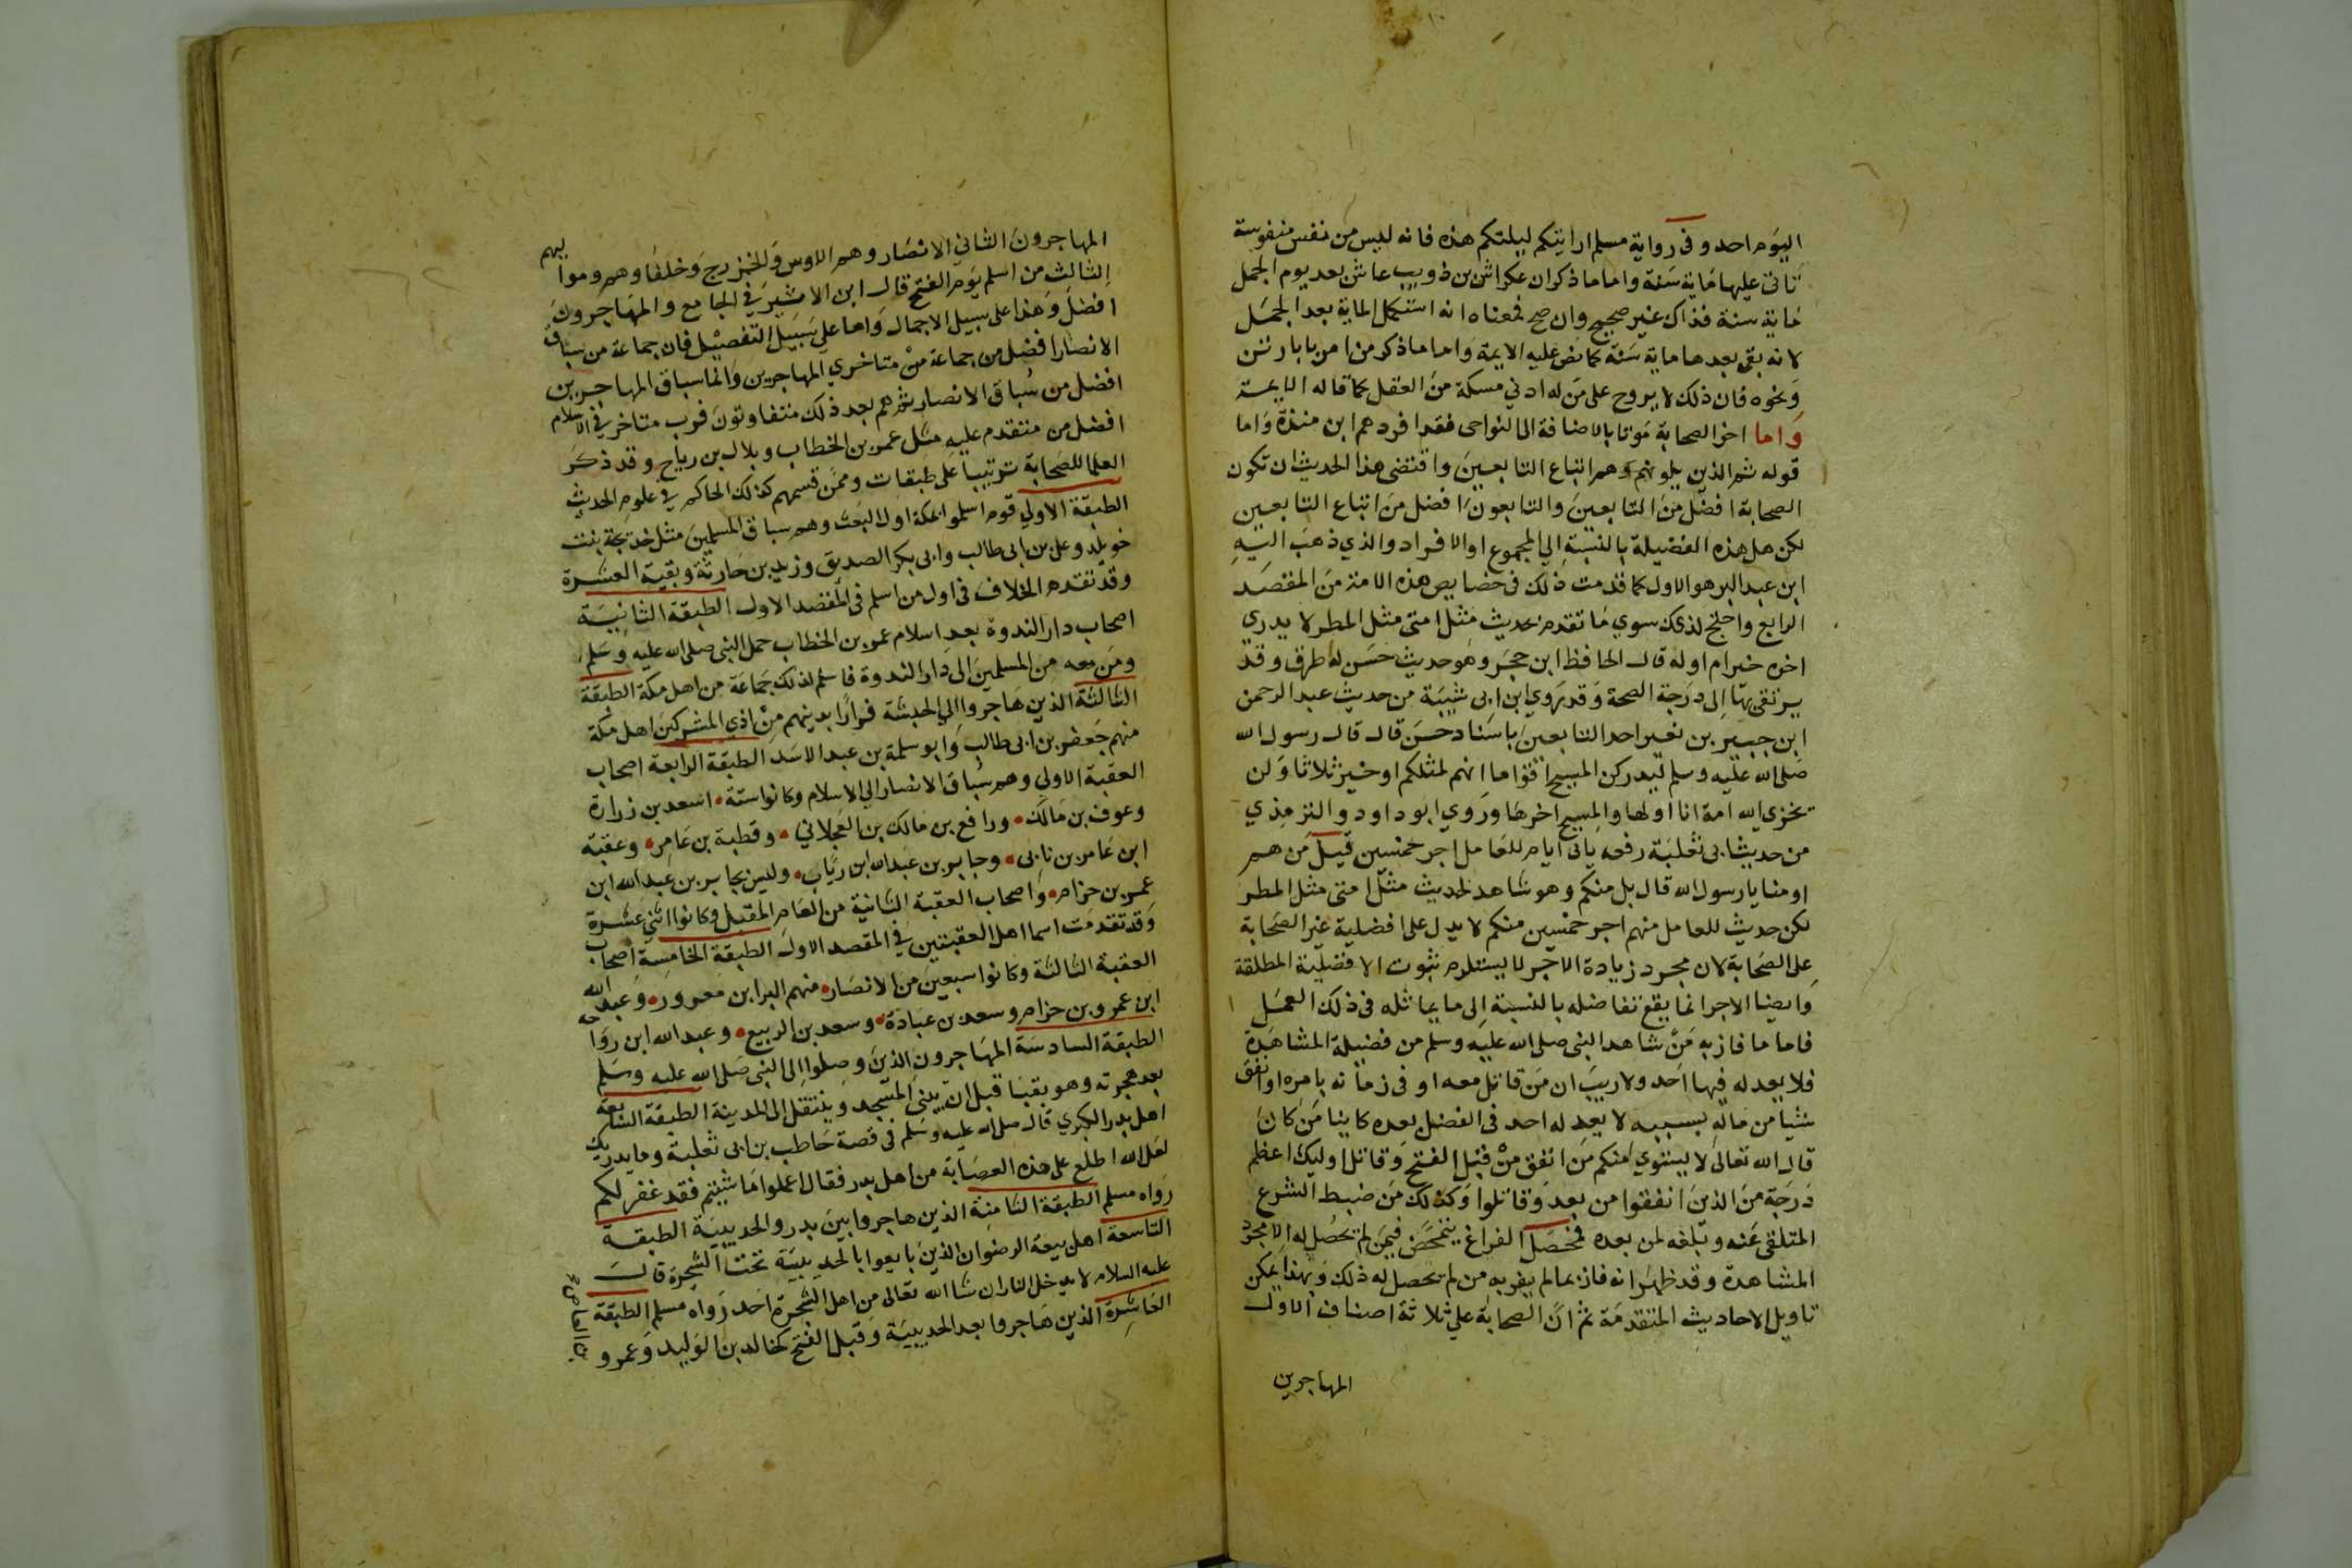 اليوم احد وفى رواية مسلم ارايتكم ليلتكم هذه فانه ليس من نفس منفوسة
تاتى عليها ماية سنة واما ما ذكر ان عكراش بن ذويب عاش بعد يوم الجمل
ماية سنة فذاك غير صحيح وان صح فمعناه انه استكمل الماية بعد الجمل
لا نه بقى بعدها ماية سنة كما نص عليه الايمة واما ما ذكر من امر بابا رتن
ونحوه فان ذلك لا يروح على من له ادنى مسكة من العقل كما قاله الايمة
واما اخر الصحابة موتا بالاضافة الى النواحى فقد افردهم ابن مندة واما
قوله ثم الذين يلونهم وهم اتباع التابعين واقتضى هذا الحديث ان تكون
الصحابة افضل من التابعين والتابعون افضل من اتباع التابعين
لكن هل هذه الفضيلة بالنسبة الي المجموع او الافراد والذي ذهب اليه
ابن عبد البر هو الاول كما قدمت ذلك فى خصايص هذه الامة من المقصد
الرابع واحتج لذلك سوي ما تقدم بحديث مثل امتى مثل المطر لا يدري
اخره خير ام اوله قال الحافظ ابن حجر وهو حديث حسن له طرق وقد
يرتقى بها الى درجة الصحة وقد روي ابن ابى شيبة من حديث عبد الرحمن
ابن جبير بن نفير احد التابعين باسناد حسن قال قال رسول الله
صلى الله عليه وسلم ليدركن المسيح اقواما انهم لمثلكم او خير ثلاثا ولن
يخزي الله امة انا اولها والمسيح اخرها وروي ابو داود والترمذي
من حديث ابى ثعلبة رفعه ياتى ايام للعامل اجر خمسين قيل من هم
او منا يا رسول الله قال بل منكم وهو شاهد لحديث مثل امتى مثل المطر
لكن حديث للعامل منهم اجر خمسين منكم لا يدل على افضلية غير الصحابة
على الصحابة لان مجرد زيادة الاجر لا يستلزم ثبوت الا فضلية المطلقة
وايضا الاجر انما يقع تفاضله بالنسبة الى ما يماثله فى ذلك العمل
فاما ما فاز به من شاهد النبى صلى الله عليه وسلم من فضيلة المشاهدة
فلا يعدله فيها احد ولا ريب ان من قاتل معه او فى زمانه بامره او انفق
شيا من ماله بسببه لا يعدله احد فى الفضل بعده كاينا من كان
قال الله تعالى لا يستوي منكم من انفق من قبل الفتح وقاتل اوليك اعظم
درجة من الذين انفقوا من بعد وقاتلوا وكذلك من ضبط الشرع
المتلقى عنه وبلغه لمن بعده فمحصل الفراغ يتمحض فيمن لم تحصل له الا مجرد
المشاهدة وقد ظهر انه فاز بما لم يفز به من لم تحصل له ذلك وبهذا يمكن
تاويل الاحاديث المتقدمة ثم ان الصحابة علي ثلاثة اصناف الاول
المهاجرين
المهاجرون الثاني الانصار وهم الاوس والخزرج وخلفا وهم ومواليهم
الثالث من اسلم يوم الفتح قال ابن الاثير في الجامع والمهاجرون
افضل وهذا على سبيل الاجمال واما علي سبيل التفصيل فان جماعة من سباق
الانصار افضل من جماعة من متاخري المهاجرين وانما سباق المهاجرين
افضل من سباق الانصار ثم هم بعد ذلك متفاوتون فرب متاخر في الاسلام
افضل من متقدم عليه مثل عمر بن الخطاب وبلال بن رباح وقد ذكر
العلما للصحابة ترتيبا على طبقات وممن قسمهم كذلك الحاكم في علوم الحديث
الطبقة الاولي قوم اسلموا بمكة اول البعث وهم سباق المسلمين مثل خديجة بنت
خويلد وعلي بن ابى طالب وابى بكر الصديق وزيد بن حارثة وبقية العشرة
وقد تقدم الخلاف فى اول من اسلم فى المقصد الاول الطبقة الثانية
اصحاب دار الندوة بعد اسلام عمر بن الخطاب حمل النبى صلى الله عليه وسلم
ومن معه من المسلمين الى دار الندوة فاسلم لذلك جماعة من اهل مكة الطبقة
الثالثة الذين هاجروا الي الحبشة فرارا بدينهم من اذي المشركين اهل مكة
منهم جعفر بن ابى طالب وابو سلمة بن عبد الاسد الطبقة الرابعة اصحاب
العقبة الاولي وهم سباق الانصار الي الاسلام وكانوا ستة اسعد بن زرارة
وعوف بن مالك ورافع بن مالك بن العجلاني وقطبة بن عامر وعقبة
ابن عامر بن نابى وجابر بن عبد الله ابن رياب وليس بجابر بن عبد الله ابن
عمر بن حزام واصحاب العقبة الثانية من العام المقبل وكانوا اثني عشرة
وقد تقدمت اسما اهل العقبتين في المقصد الاول الطبقة الخامسة اصحاب
العقبة الثالثة وكانوا سبعين من الانصار منهم البرا بن معرور وعبد الله
ابن عمرو بن حزام وسعد بن عبادة وسعد بن الربيع وعبد الله ابن رواحه
الطبقة السادسة المهاجرون الذين وصلوا الى النبى صلى الله عليه وسلم
بعد هجرته وهو بقبا قبل ان يبنى المسجد وينتقل الى المدينة الطبقة السابعة
اهل بدر الكبري قال صلى الله عليه وسلم فى قصة حاطب بن ابى ثعلبة وما يدريك
لعل الله اطلع على هذه العصابة من اهل بدر فقال اعملوا ما شيتم فقد غفر لكم
رواه مسلم الطبقة الثامنة الذين هاجروا بين بدر والحديبية الطبقة
التاسعة اهل بيعة الرضوان الذين بايعوا بالحديبية تحت الشجرة قال
عليه السلام لا يدخل النار ان شا الله تعالى من اهل الشجرة احد رواه مسلم الطبقة
العاشرة الذين هاجروا بعد الحديبية وقبل الفتح كخالد بن الوليد وعمرو
بن العاص